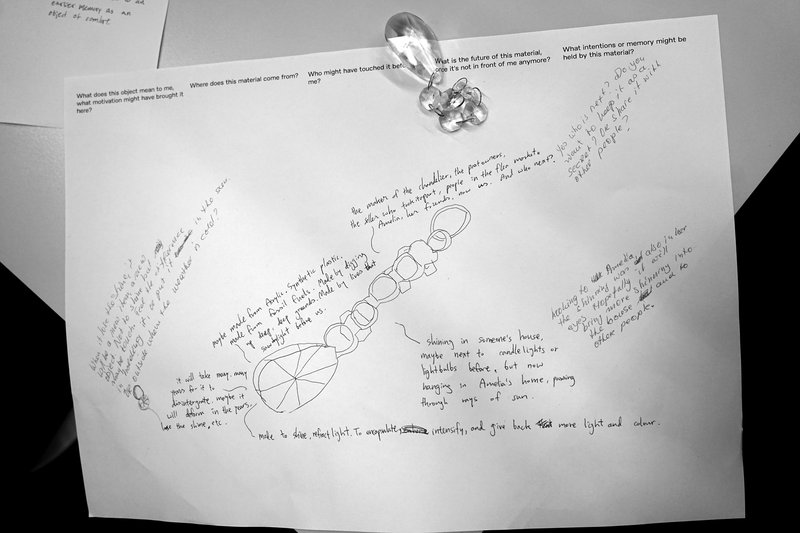 earlier memory as an
object of comfort.
What does this object mean to me,
what motivation might have brought it
here?
Where does this material come from?
Who might have touched it before
me?
What is the future of this material,
once it's not in front of me anymore?
What intentions or memory might be
held by this material?
yes who is next? Do you
want to keep it as a
secret? Or share it with
other people?
the maker of the chandelier, the past owners,
the seller who took it apart, people in the flea market.
Amelia, her friends, now us. And who next?
maybe made from Acrylic. Synthetic plastic.
made from fossil fuels. Made by digging
up deep, deep grounds. Made by lives that
sunlight before us.
it will take many, many
years for it to
disintegrate. maybe it
will deform in the years.
lose the shine, etc.
shining in someone's house,
maybe next to candle lights or
lightbulbs before, but now
hanging in Amelia's home, passing
through rays of sun.
looking to Amelia
the shinning was also in her
eyes. Hopefully it will
bring more shinning into
the house and to
other people.
make to shine, reflect light. To encapsulate, intensify, and give back more light and colour.